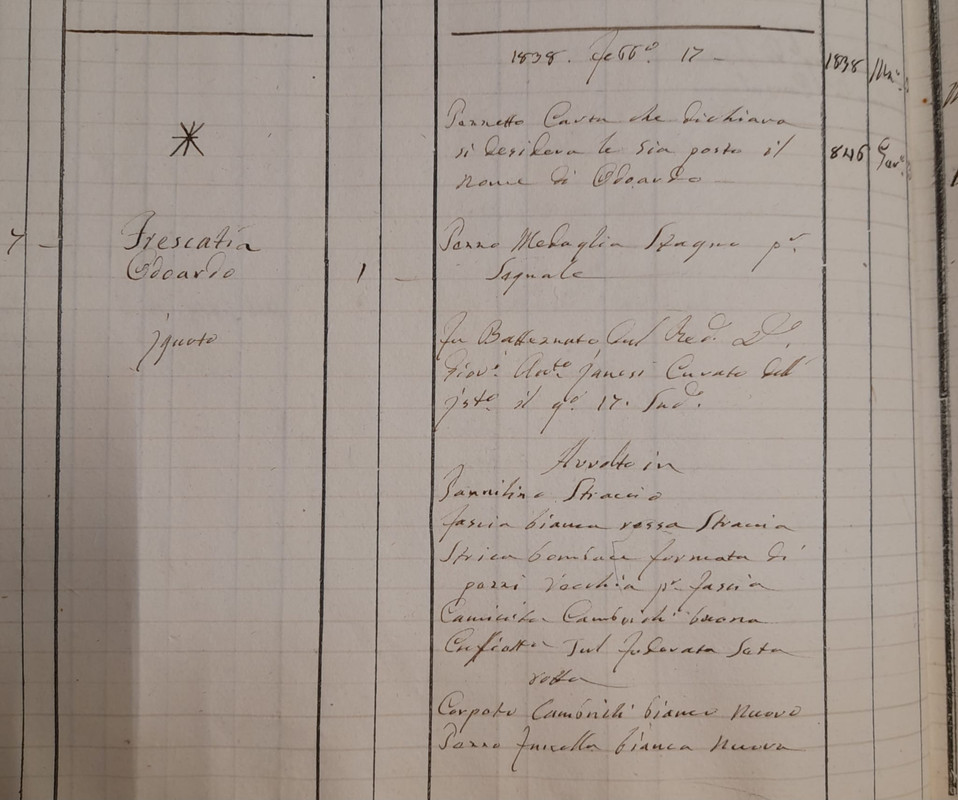 1838. Febb.º 17 -
1838
Pezzetto Carta che dichiara
si desidera le sia posto il
846
nome di Odoardo
7 -
Frescatia
Odoardo
1 -
Pezzo Medaglia Stagno p.r
Segnale
Jgnoto
Fu Battezzato dal Red. D.
Giov. Ant.º Janesi Curato dell
J.sto il gº. 17. Sud.º
Avvolto in
Pannilino Straccio
fascia bianca rossa Straccia
Strica bombace formata di
pezzi vecchia p.r fascia
Camicita Cambrich buona
Cuffiotto Tul foderata Seta
rotta
Corpeto Cambrich bianco nuovo
Pezzo fucella bianca nuova